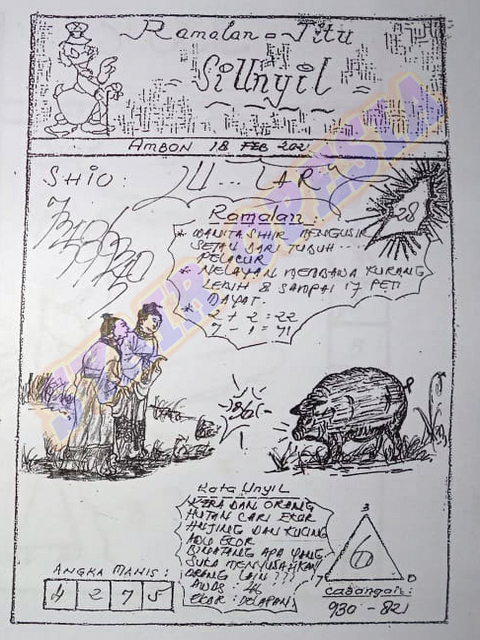 Ramalan = Jitu
Si Unyil
AMBON 18 FEB 2021
SHIO: JU... LAR
Ramalan:
28
* WANITA SIHIR MENGUSIR
SETAN DARI TUBUH....
PELACUR
* NELAYAN MEMBAWA KURANG
LEBIH 8 SAMPAI 17 PETI
MAYAT.
* 2 + 2 = 22
7 - 1 = 71
86/-
Kata Unyil
KERA DAN ORANG
HUTAN CARI EKOR
ANJING DAN KUCING
ADU EKOR
BINATANG APA YANG
SUKA MENYUSAHKAN
ORANG LAIN???
EKOR: DELAPAN
3
6
7
0
Cadangan:
930 - 821
ANGKA MANIS:
4 2 7 5